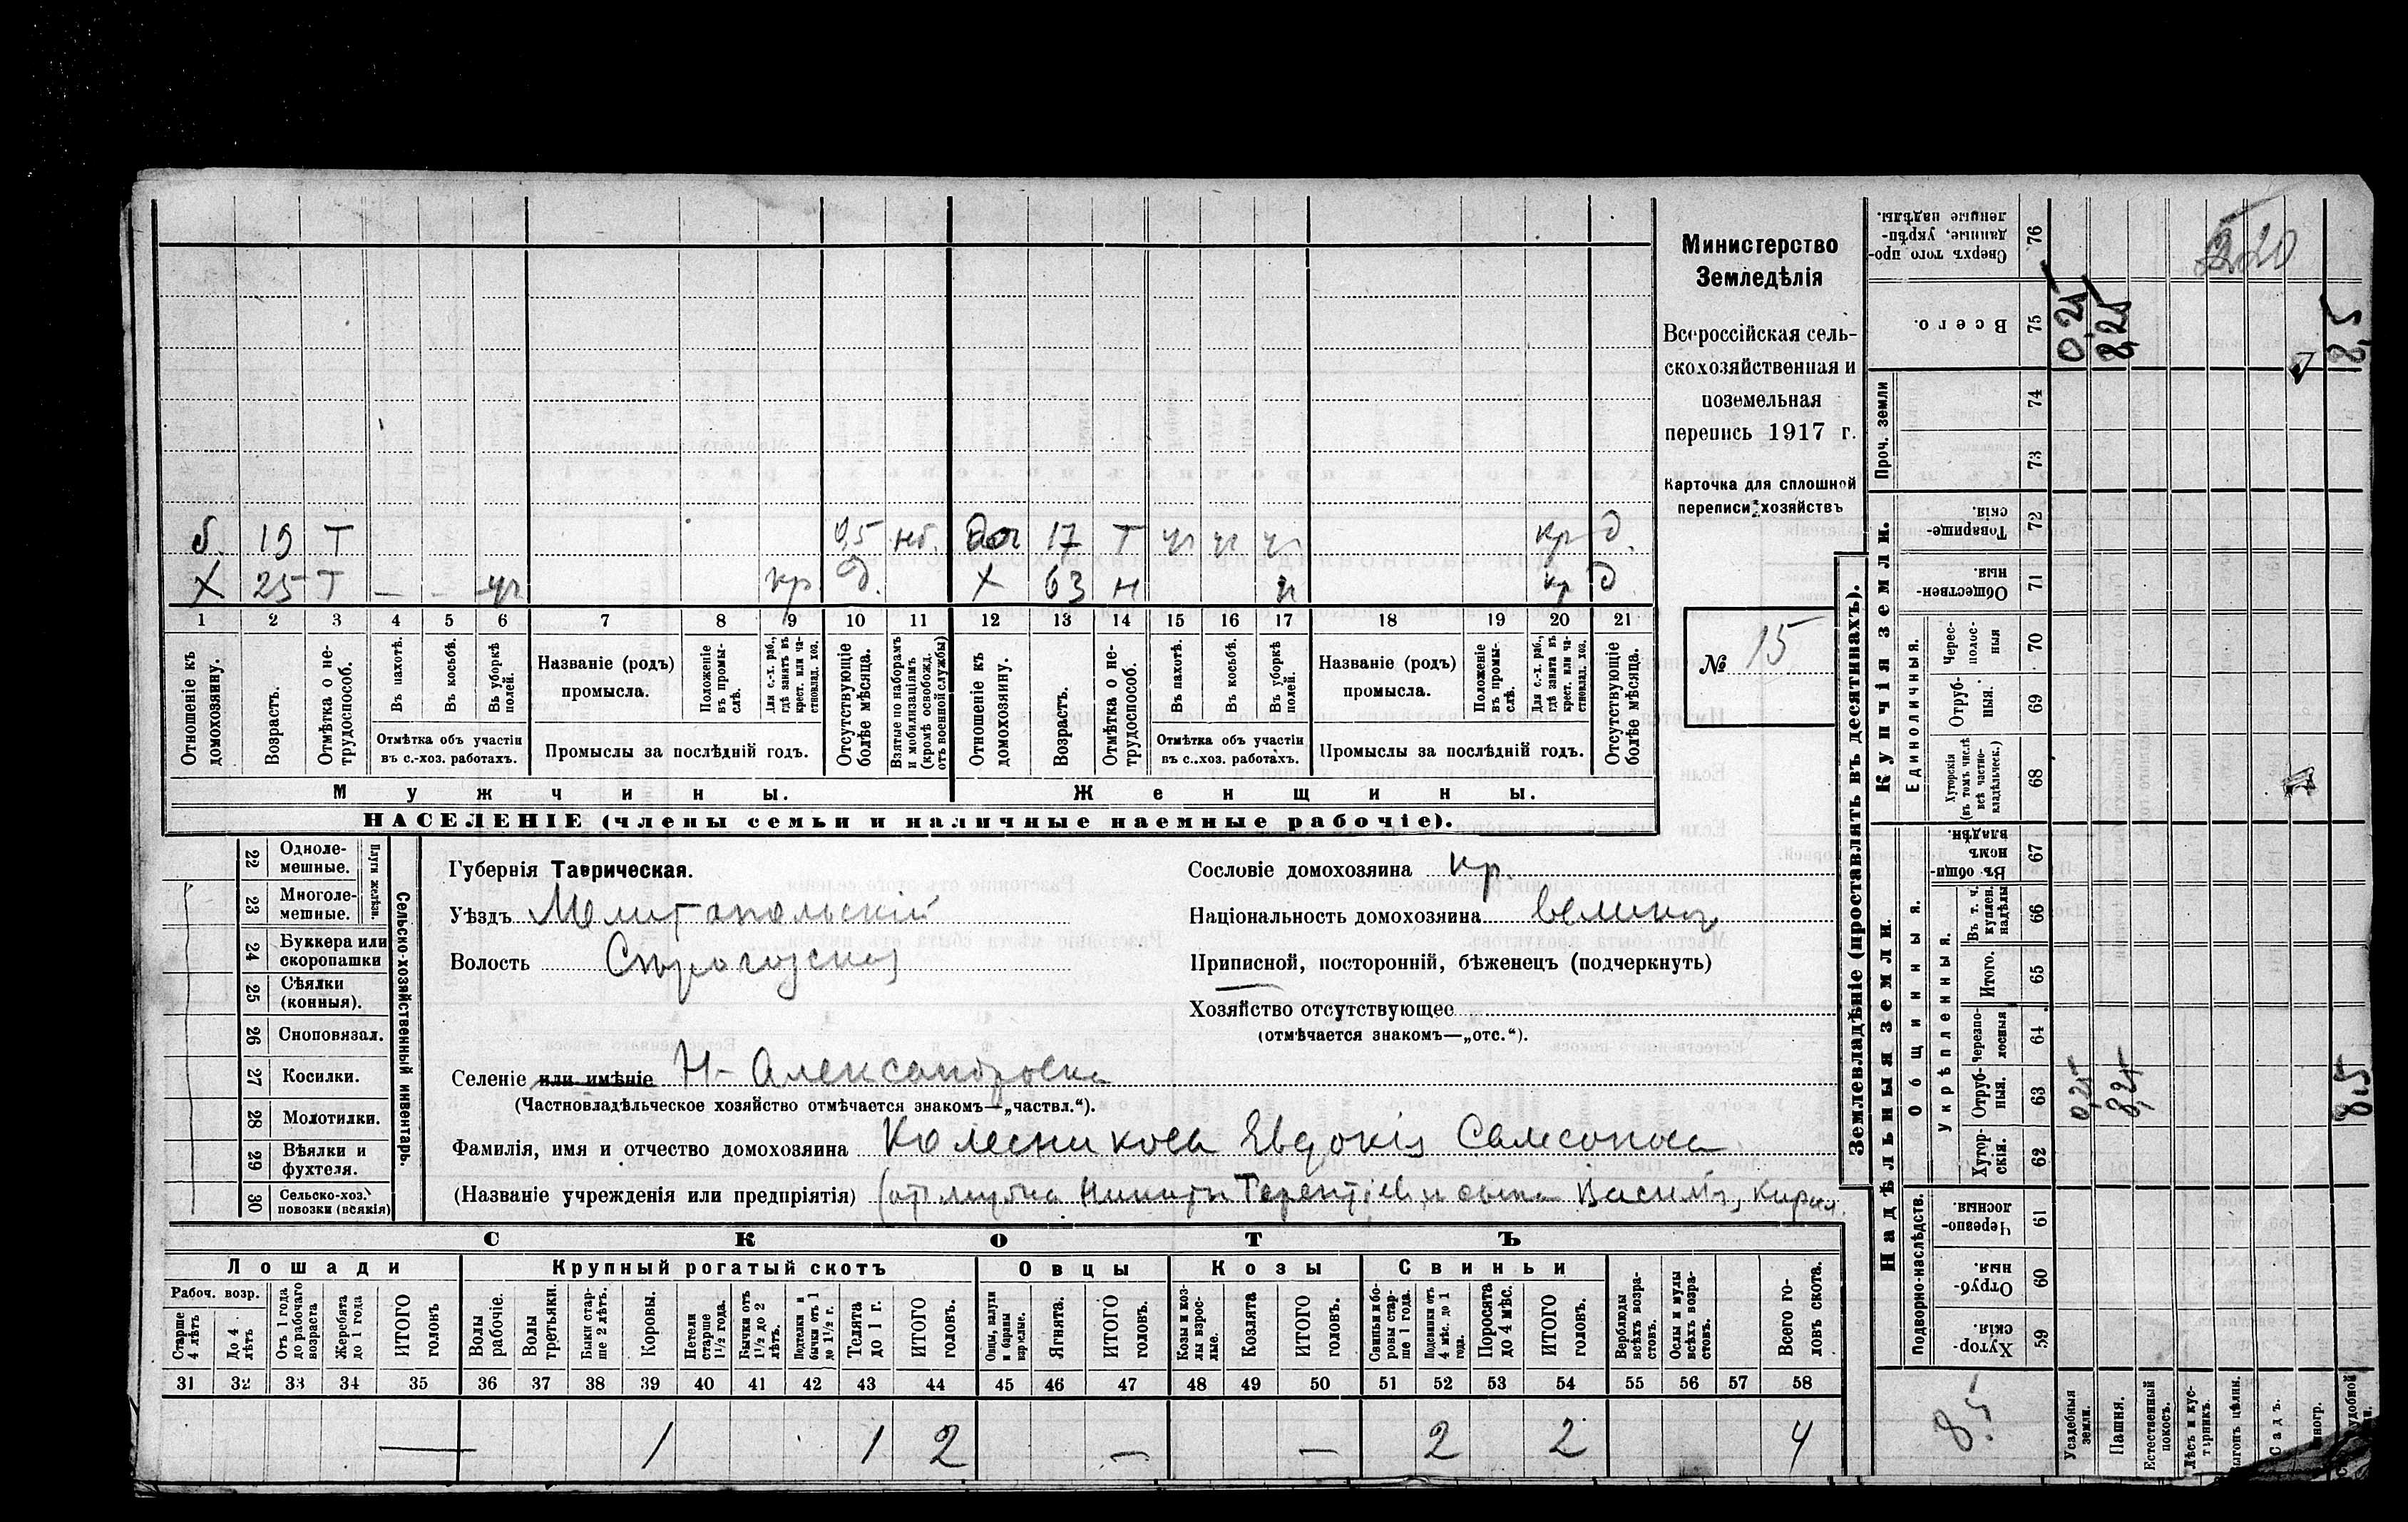 Министерство
Земледѣлія
Всероссійская сель-
скохозяйственная и
поземельная
перепись 1917 г.
Карточка для сплошной
переписи хозяйствъ
№ 15
б. 19 Т 0,5 нб. доч 17 Т уч уч уч кр д.
Х 25 Т — - уч кр д. Х 63 н н кр д
1 2 3 4 5 6 7 8 9 10 11 12 13 14 15 16 17 18 19 20 21
Отношеніе къ домохозяину.
Возрастъ.
Отмѣтка о не-трудоспособ.
Въ пахотѣ.
Въ косьбѣ.
Въ уборкѣ полей.
Названіе (родъ) промысла.
Положеніе въ промы-слѣ.
Для с.-х. раб., гдѣ занятъ въ крест. или ча-стновлад. хоз.
Отсутствующіе болѣе мѣсяца.
Взятые по наборамъ и мобилизаціямъ (кромѣ освобожд. отъ военной службы)
Отношеніе къ домохозяину.
Возрастъ.
Отмѣтка о не-трудоспособ.
Въ пахотѣ.
Въ косьбѣ.
Въ уборкѣ полей.
Названіе (родъ) промысла.
Положеніе въ промы-слѣ.
Для с.-х. раб., гдѣ занята въ крест. или ча-стновлад. хоз.
Отсутствующіе болѣе мѣсяца.
Отмѣтка объ участіи въ с.-хоз. работахъ.
Промыслы за послѣдній годъ.
Отмѣтка объ участіи въ с.-хоз. работахъ.
Промыслы за послѣдній годъ.
Мужчины. Женщины.
НАСЕЛЕНІЕ (члены семьи и наличные наемные рабочіе).
22 Одноле-мешные.
23 Многоле-мешные.
Плуги желѣзн.
24 Буккера или скоропашки
25 Сѣялки (конныя).
26 Сноповязал.
27 Косилки.
28 Молотилки.
29 Вѣялки и фухтеля.
30 Сельско-хоз. повозки (всякія)
Сельско-хозяйственный инвентарь.
Губернія Таврическая.
Уѣздъ Мелитопольскій
Волость Сѣрогозская
Сословіе домохозяина кр.
Національность домохозяина великор
Приписной, посторонній, бѣженецъ (подчеркнуть)
Хозяйство отсутствующее
(отмѣчается знакомъ—„отс.“).
Селеніе или имѣніе Н-Александровка
(Частновладѣльческое хозяйство отмѣчается знакомъ—„частвл.“).
Фамилія, имя и отчество домохозяина Колесникова Евдокія Самсонова
(Названіе учрежденія или предпріятія) Никиты Терентіев. и сына Василія, Кирил.
СКОТЪ
Лошади Крупный рогатый скотъ Овцы Козы Свиньи
Рабоч. возр.
Старше 4 лѣтъ
До 4 лѣтъ
Отъ 1 года до рабочаго возраста
Жеребята до 1 года
ИТОГО головъ
Волы рабочіе.
Волы третьяки.
Быки стар-ше 2 лѣтъ.
Коровы.
Нетели старше 1½ года.
Бычки отъ 1½ до 2 лѣтъ.
Подтелки и бычки отъ 1 до 1½ г.
Телята до 1 г.
ИТОГО головъ.
Овцы, валухи и бараны взрослые.
Ягнята.
ИТОГО головъ.
Козы и коз-лы взрос-лые.
Козлята
ИТОГО головъ.
Свиньи и бо-ровы стар-ше 1 года.
Подсвинки отъ 4 мѣс. до 1 года.
Поросята до 4 мѣс.
ИТОГО головъ.
Верблюды всѣхъ возра-стовъ.
Ослы и мулы всѣхъ возра-стовъ.
Всего го-ловъ скота.
31 32 33 34 35 36 37 38 39 40 41 42 43 44 45 46 47 48 49 50 51 52 53 54 55 56 57 58
— 1 1 2 — — 2 2 4
Землевладѣніе (проставлять въ десятинахъ).
Надѣльныя земли. Купчія земли. Проч. земли
Подворно-наслѣдств. Общинныя. Единоличныя.
Укрѣпленныя.
Сверхъ того про-данные, укрѣп-ленные надѣлы. 76
Всего. 75 0,25 8,25 8,5
74
73
Товарище-скія. 72
Обществен-ныя. 71
Черес-полос-ныя 70
Отруб-ныя. 69
Хуторскія (въ томъ числѣ всѣ частно-владѣльческ.) 68
Въ общи-номъ владѣн. 67
Въ т. ч. куплен. надѣлы 66
Итого. 65
Черезпо-лосныя 64
Отруб-ныя. 63 0,25 8,25 8,5
Хутор-скія. 62
Черезпо-лосныя. 61
Отруб-ныя. 60
Хутор-скія. 59
8,5
Усадебныя земли.
Пашня.
Естественный покосъ.
Лѣсъ и кус-тарникъ.
Садъ.